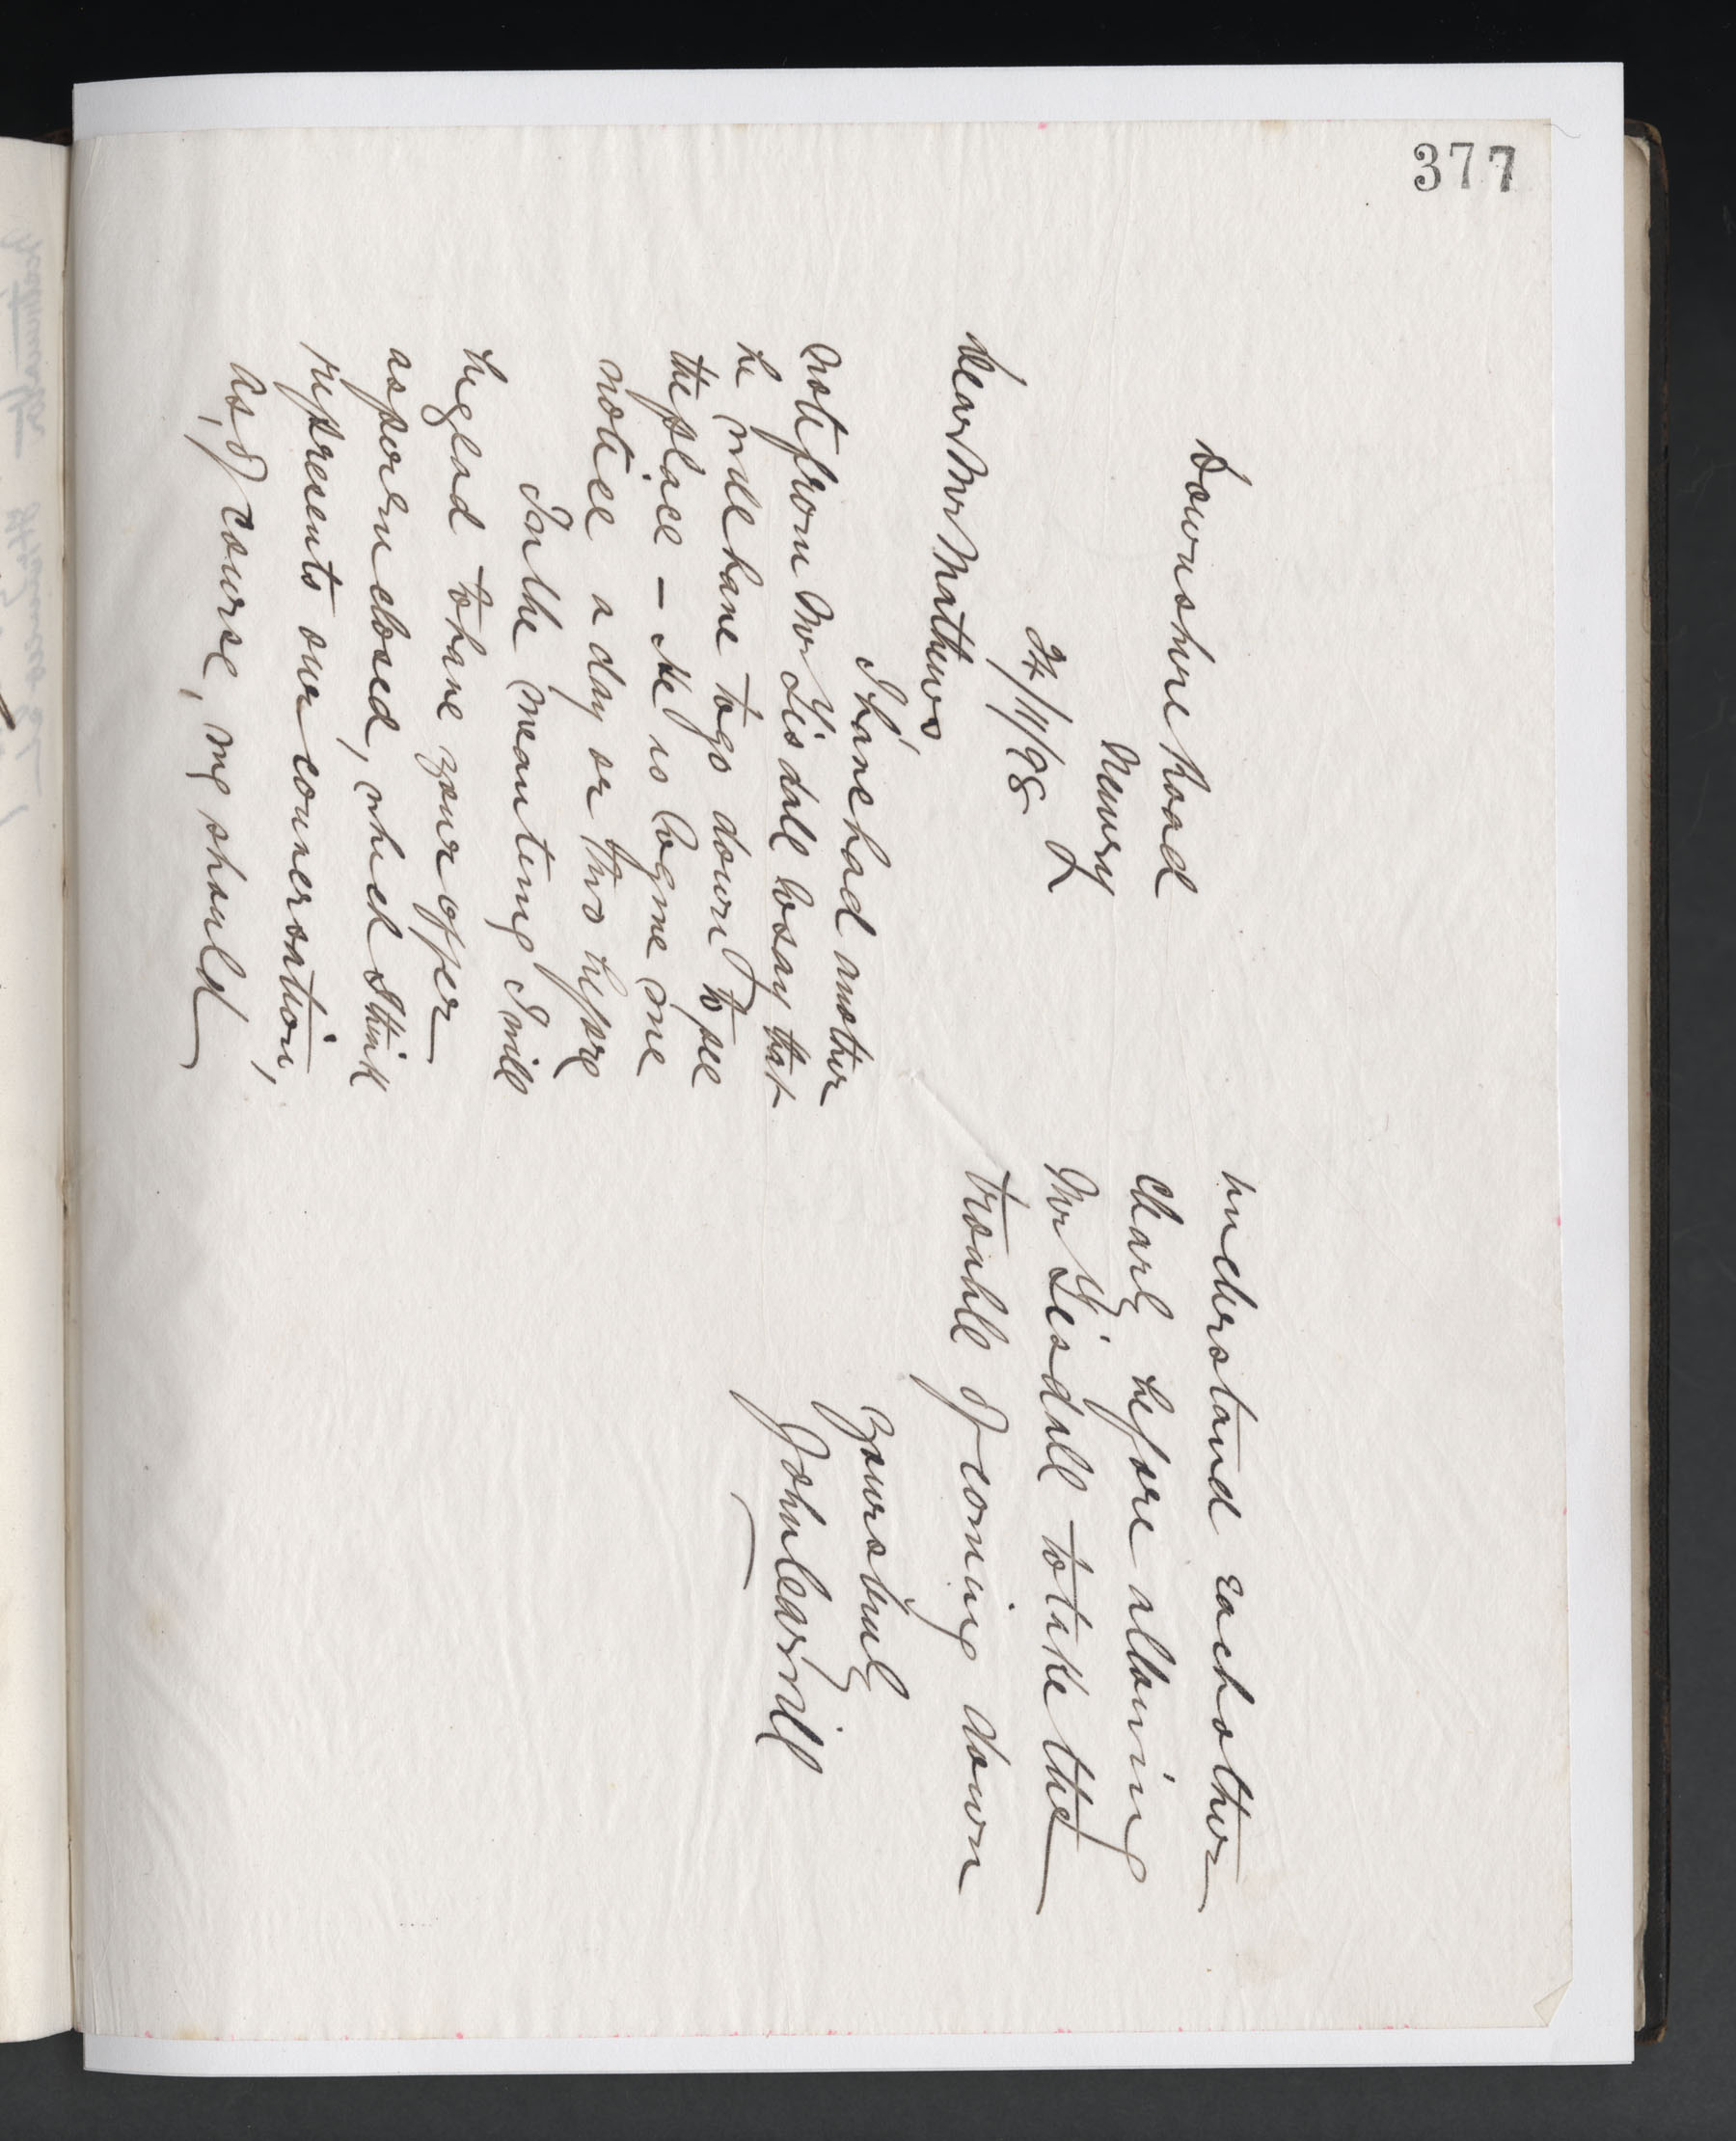 377
Downshire Road
Newry
24/11/98
Dear Mr Mathews
I have had another
note from Mr Tisdall to say that
he will have to go down to see
the place - He is to give me
notice a day or two before
In the meantime I will
be glad to have your offer
as per enclosed, which I think
represents our conversation,
as, of course, we should
understand each other
clearly before allowing
Mr Tisdall to take the
trouble of coming down
Yours truly